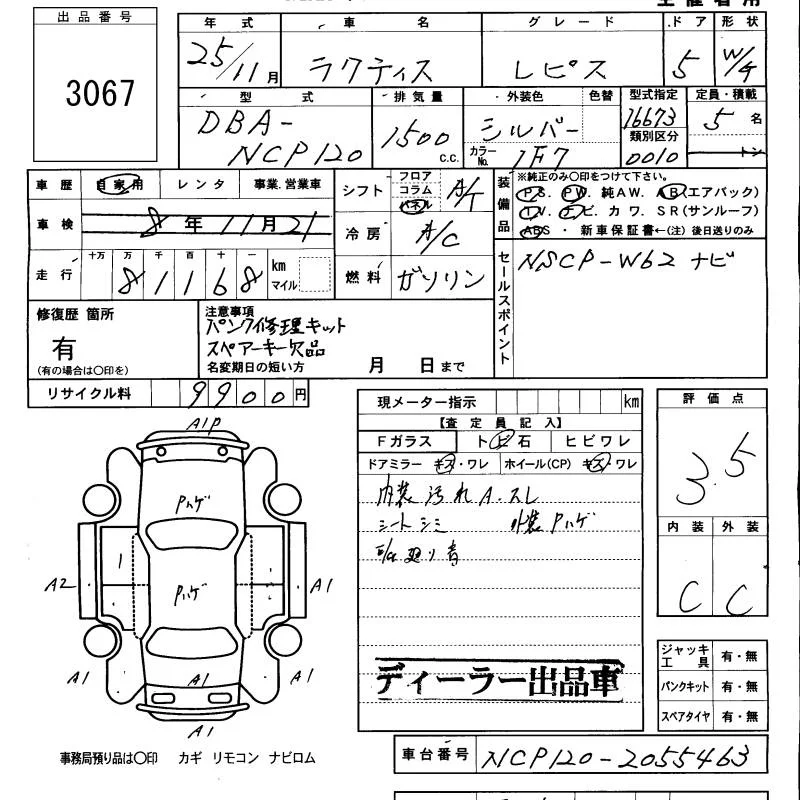 出品番号
3067
年式 車名 グレード ドア 形状
25/11月 ラクティス レピス 5 W/G
型式 排気量 外装色 色替 型式指定 定員・積載
DBA-NCP120 1500 c.c. シルバー 16673 5名
カラーNo. 1F7 類別区分 0010 トン
車歴 自家用 レンタ 事業.営業車
シフト フロア コラム パネル A/T
装備品 ※純正のみ○印をつけて下さい。
P S. P W. 純A W. A B(エアバック)
T V. ナビ. カワ. S R(サンルーフ)
ABS ・ 新車保証書←(注) 後日送りのみ
車検 8年11月21
冷房 A/C
走行 十万 万 千 百 十 一
81168 km マイル
燃料 ガソリン
セールスポイント NSCP-W62 ナビ
修復歴 箇所
有
(有の場合は○印を)
注意事項
パンク修理キット
スペアーキー欠品
名変期日の短い方 月 日まで
リサイクル料 9900円
現メーター指示 km
【査定員記入】
Fガラス トビ石 ヒビワレ
ドアミラー キズ・ワレ ホイール(CP) キズ・ワレ
内装汚れ A.スレ
シートシミ 外装Pハゲ
廻り音
ディーラー出品車
評価点
3.5
内装 外装
C C
ジャッキ工具 有・無
パンクキット 有・無
スペアタイヤ 有・無
A1P
Pハゲ
1
A2 Pハゲ A1
A1 A1 A1
A1
事務局預り品は○印 カギ リモコン ナビロム
車台番号 NCP120-2055463